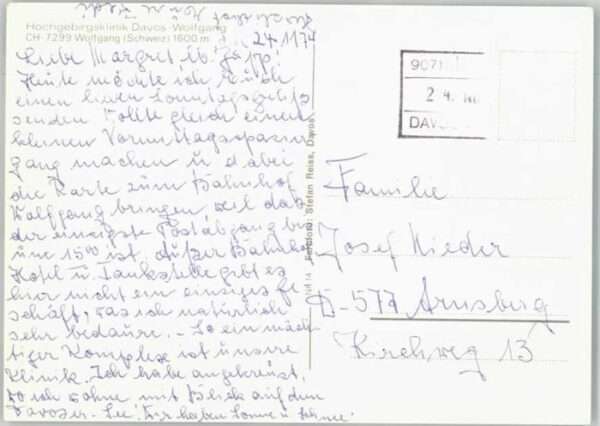 Hochgebirgsklinik Davos-Wolfgang
CH-7299 Wolfgang (Schweiz) 1600 m
24.11.74
Liebe Margret u.
Heute möchte ich Euch
einen lieben Sonntagsgruß
senden wollte gleich einen
kleinen Vormittagsspazier
gang machen u dabei
die Karte zum Bahnhof
Wolfgang bringen weil das
der einzigste Postabgang bis
um 15⁰⁰ ist. Außer Bahnhof
Hotel u Tankstelle gibt es
hier nicht ein einziges Ge
schäft, was ich natürlich
sehr bedaure. - So ein mäch
tiger Komplex ist unsre
Klinik. Ich habe angekreuzt,
wo ich wohne mit Blick auf den
Davoser-See! Wir haben Sonne u Schnee!
Farbfoto: Stefan Reiss, Davos
9071
24.
DAVOS
Familie
Josef Nieder
D-577 Arnsberg
Kirchweg 13